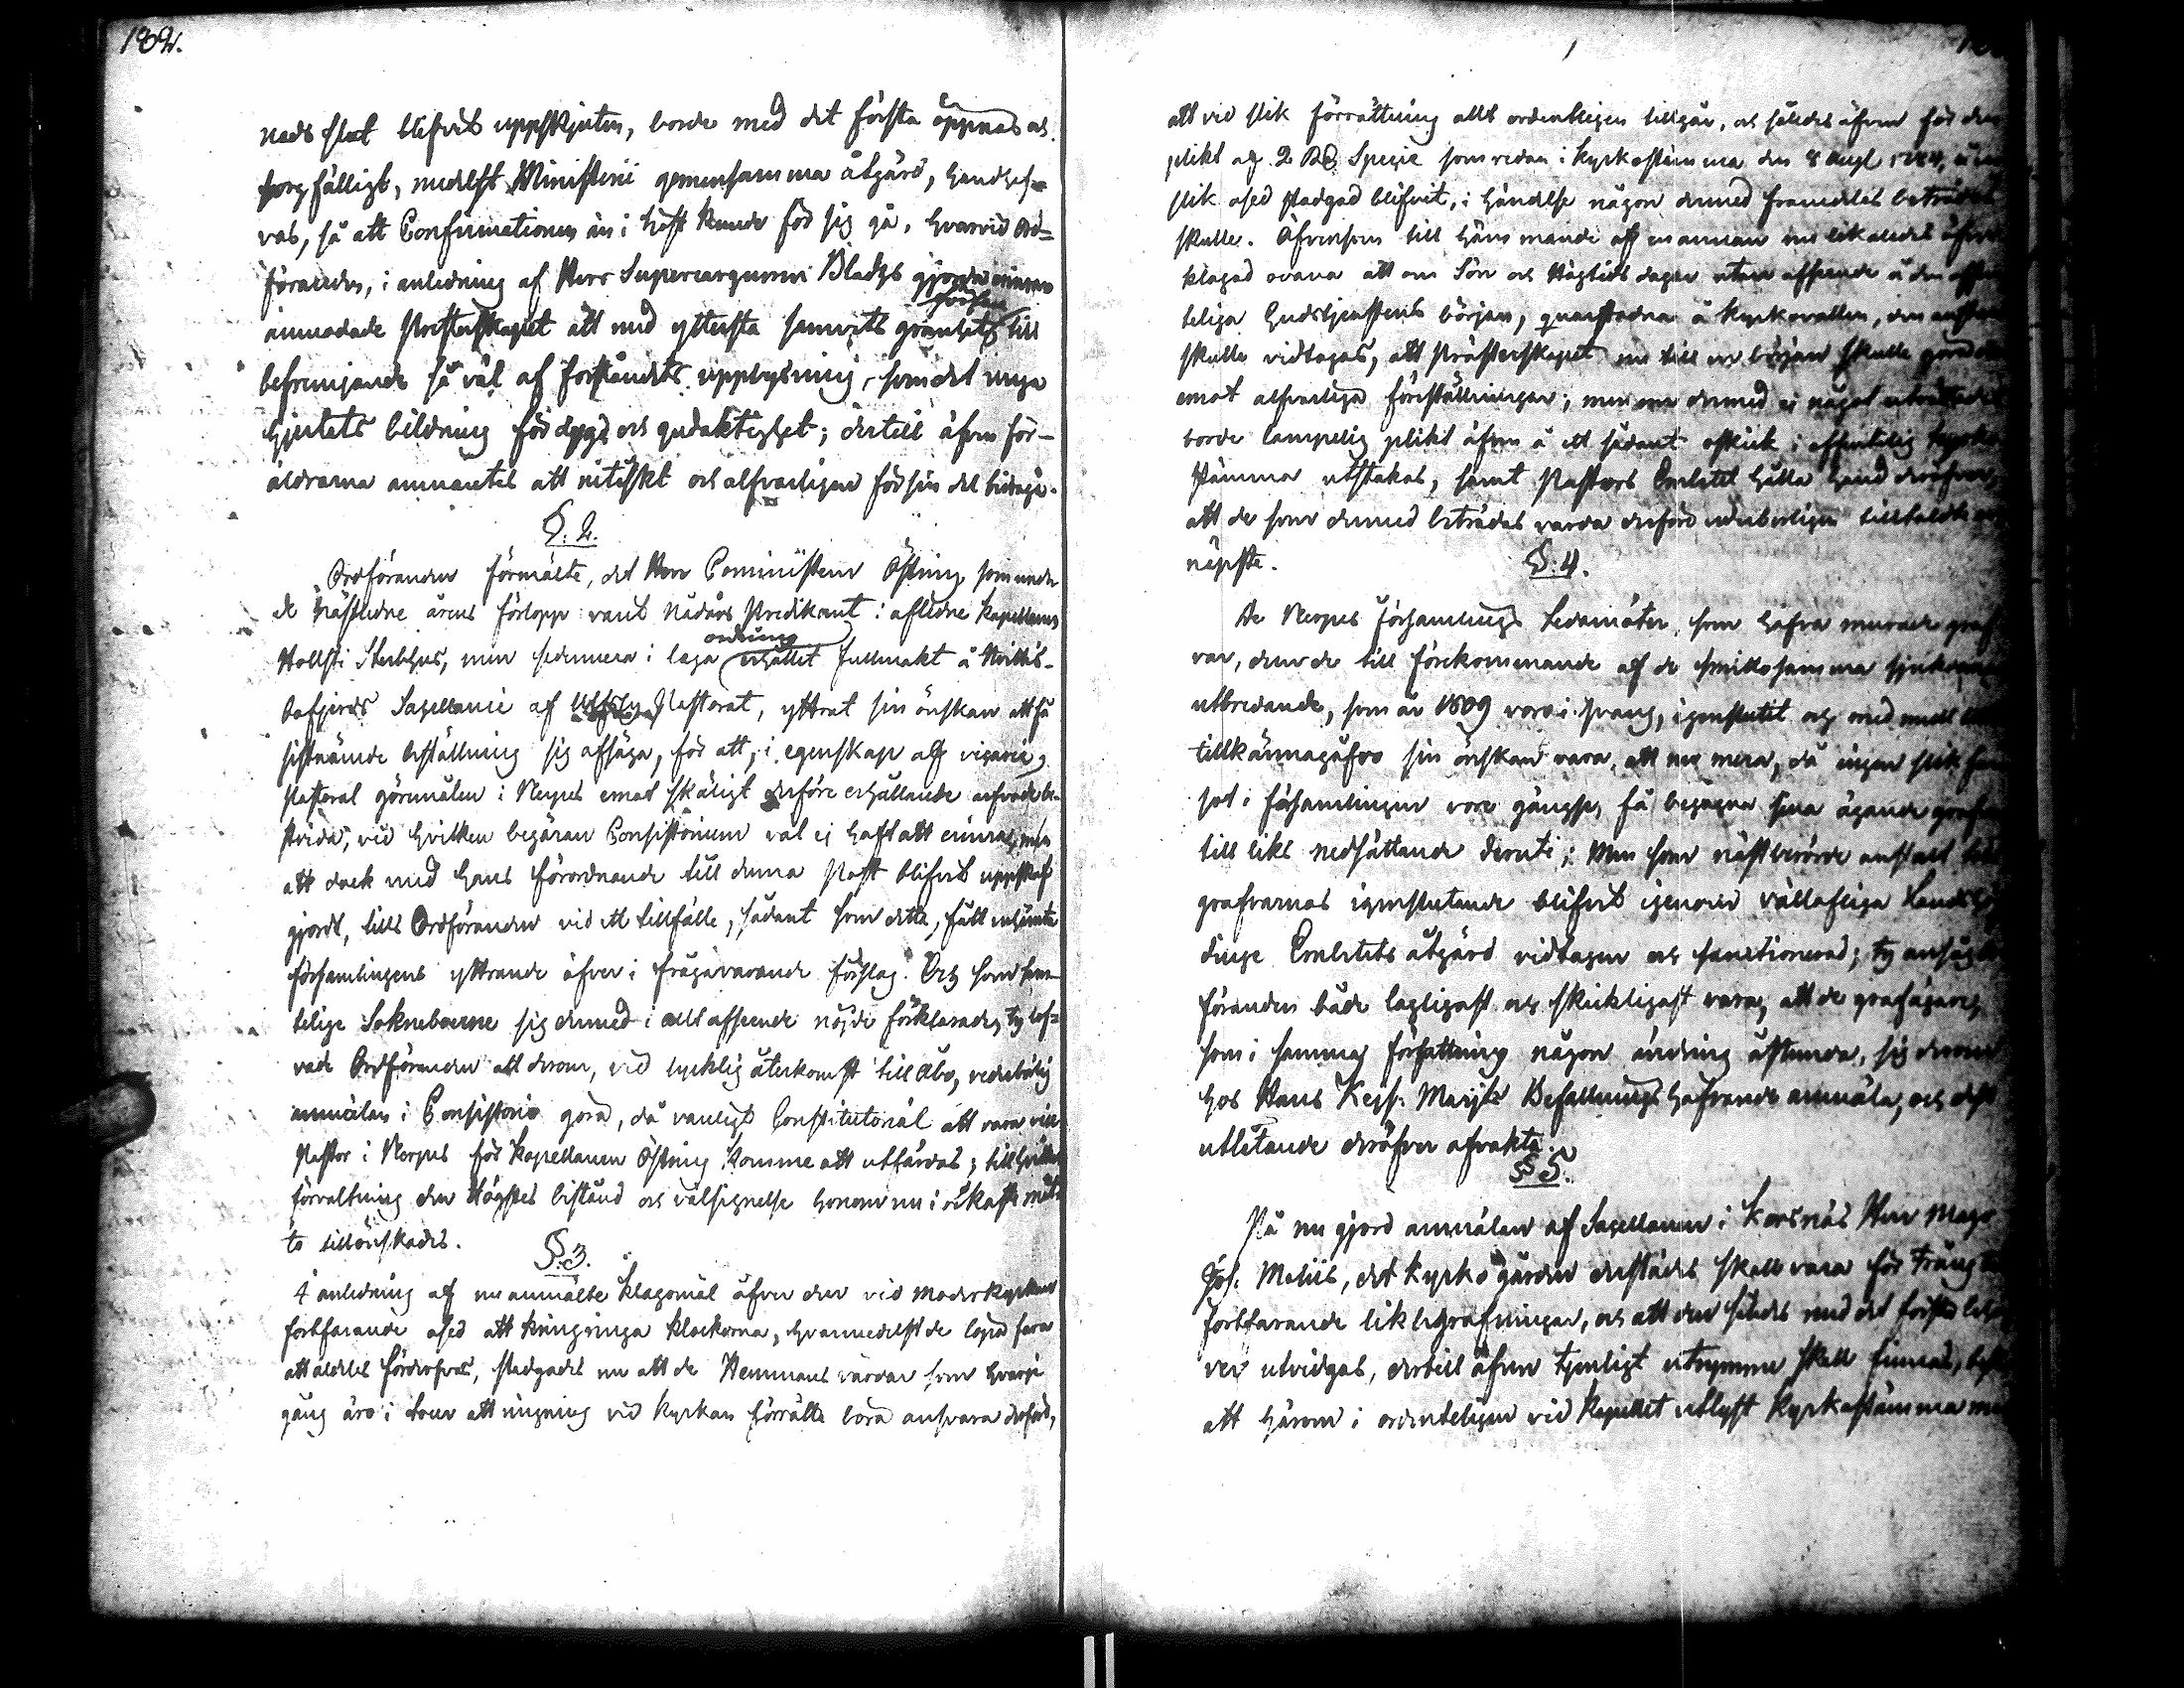 182.
nads slut blifvit uppskjuten, borde med det första öppnas och
sorgfälligt, medelst Ministerii gemensamma åtgärd, handhaf-
vas, så att Confirmationen än i höst kunde för sig gå, hvarvid Ord-
föranden, i anledning af Herr Supercargueurn Bladhs gjorde
anmodade Presterskapet att med yttersta samvets grannlagenhet till
befrämjande så väl af förståndets upplysning, som det unga
hjertats bildning för dygd och gudaktighet; dertill äfven för-
äldrarna anmantes att nitiskt och alfvarligen för sin del bidraga.
§. 2.
Ordföranden förmälte, det Herr Comministern Östring som under
de nästledne årens förlopp varit Nådårs Predikant i aflidne Kapellans
Hollsti Sterbhus, men sedermera i laga ordning erhållit fullmakt å Kvitis-
Sacellanie af Pastorat, yttrat sin önskan att få
sistnämnde beställning sig afsäga, för att, i egenskap af vicarie,
Pastoral göromålen i Nerpes emot skäligt derföre erhållande arfvode be-
strida; vid hvilken begäran Consistorium väl ej haft att erinra, men
att dock med hans förordnande till denna Post blifvit uppskof
gjordt, tills Ordföranden vid ett tillfälle, sådant som detta, fått inhämta
församlingens yttrande öfver i frågavarande förslag. Och som sam-
telige Sokneboerne sig dermed i allt afseende nöjde förklarade, ty lof-
vade Ordföranden att derom, vid lycklig återkomst till Åbo, vederbörlig
anmälan i Consistorio göra, då vanligt Constitutorial att vara vice
Pastor i Nerpes för Kapellanen Östring komme att utfärdas; till hvilken
förvaltning den Högstes bistånd och välsignelse honom nu i
to tillönskades.
§. 3.
I anledning af nu anmälte klagomål öfver den vid Moderkyrkan
fortfarande osed att kringringa klockorna, hvarmedelst de löpa fara
att aldeles förderfvas, stadgades nu att de Hemmans värdar som hvarje
gång äro i tour att ringning vid kyrkan förrätta böra ansvara derför,
att vid slik förrättning allt ordentligen tillgår, och således äfven för den
plikt af 2 Rd Specie som redan i Kyrkostämma den 8 Augl
slik osed stadgad blifvit, i händelse någon dermed framdeles beträdas
skulle. Äfvensom till hämmande af en annan nu likaledes öfver
klagad ovana att om Sön och Högtids dagar utan afseende å den offen
teliga Gudstjenstens början, quarstadna å kyrkovallen, den anstalt
skulle vidtagas, att Prästerskapet nu till en början skulle göra der
emot alfvarliga föreställningar; men om dermed ej något uträttades
borde lämpelig plikt äfven å ett sådant oskick i offentelig kyrko
stämma utstakas, samt Pastors Embetet hålla hand deröfver,
att de som dermed beträdas varda derföre vederbörligen tilltalte och
näpste.
§. 4.
De Nerpes Församlings Ledamöter, som hafva murade graf
var, dem de till förekommande af de smittosamma sjukdomars
utbredande, som år 1809 voro i svang, igenslutit och med mull
tillkännagåfvo sin önskan vara, att nu mera, då ingen slik far
sot i församlingen vore gängse, få begagna sina ägande grafvar
till liks nedsättande deruti; Men som nästberörde anstalt
grafvarnas igenslutande blifvit igenom vällofliga Landshöf
dinge Embetets åtgärd vidtagen och sanctionerad; ty ansåg Ord
föranden både lagligast och skickligast vara, att de grafägare,
som i samma författning någon ändring åstunda, sig derom
hos Hans Kejs. Maijts Befallningshafvande anmäla, och dess
utlåtande deröfver afvakta.
§ 5.
På nu gjord anmälan af Sacellanen i Korsnäs Herr Mag
Joh. Melius, det kyrkogården derstädes skall vara för trång
fortfarande likbegrafningar, och att den således med det första
ver utvidgas, dertill äfven tjenligt utrymme skall finnas,
att härom i ordenteligen vid Kapellet utlyst kyrkostämma